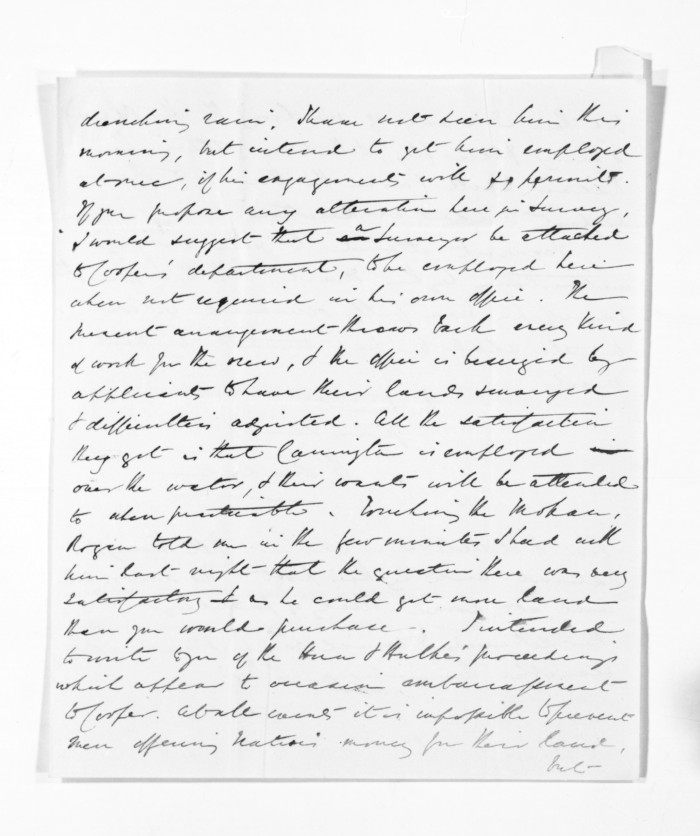 drenching rain, I have not seen him this
morning, but intend to get him employed
at once, if his engagements will permit.
If you propose any alteration here in Survey,
I would suggest that a Surveyor be attached
to Cooper's department, to be employed here
when not required in his own office. The
present arrangement throws back every kind
of work for the new, & the office is besieged by
applicants to have their lands surveyed
& difficulties adjusted. All the satisfaction
they get is that Cannington is employed
over the water, & their wants will be attended
to when practicable. Touching the Mohaw,
Rogan told me in the few minutes I had with
him last night that the question there was very
satisfactory & as he could get more land
than you would purchase. I intended
to write to you of the Hum & Hulke's proceedings
which appear to occasion embarrassment
to Cooper. At all events it is impossible to prevent
men offering Natives money for their land,
but